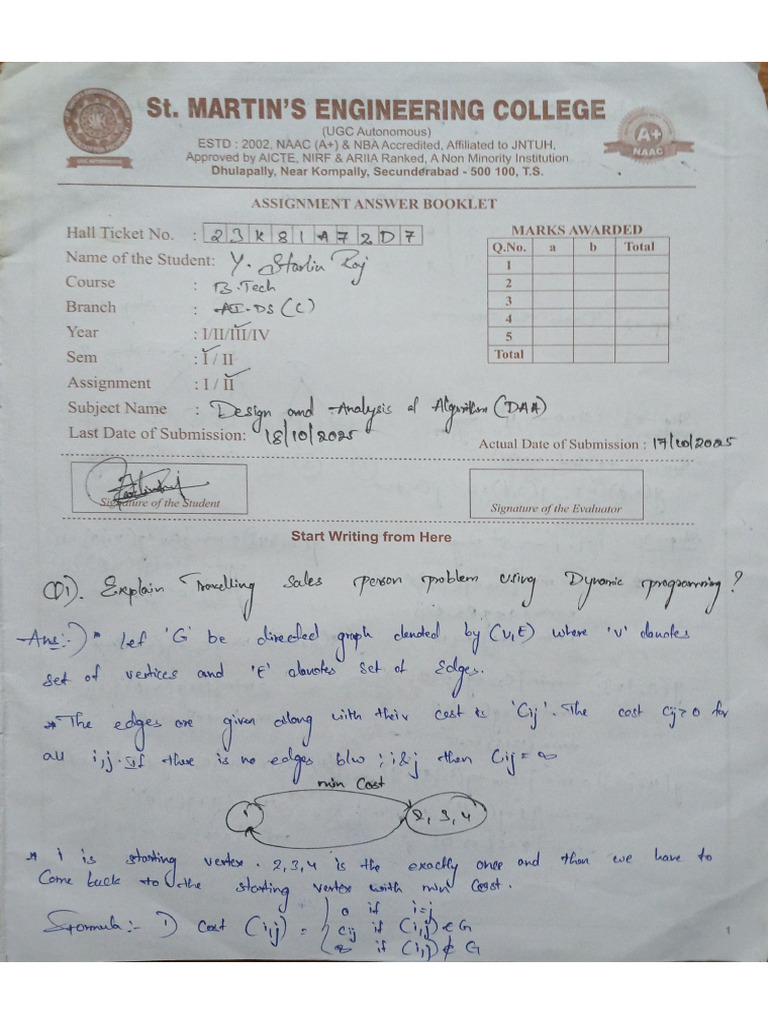 St. MARTIN'S ENGINEERING COLLEGE
(UGC Autonomous)
ESTD : 2002, NAAC (A+) & NBA Accredited, Affiliated to JNTUH,
Approved by AICTE, NIRF & ARIIA Ranked, A Non Minority Institution
Dhulapally, Near Kompally, Secunderabad - 500 100, T.S.
UGC AUTONOMOUS
A+
NAAC
ASSIGNMENT ANSWER BOOKLET
Hall Ticket No. : 23K81A72D7
Name of the Student: Y. Starlin Raj
Course : B.Tech
Branch : AI-DS (C)
Year : I/II/III/IV
Sem : I / II
Assignment : I / II
Subject Name : Design and Analysis of Algorithm (DAA)
Last Date of Submission: 18/10/2025
Actual Date of Submission : 17/10/2025
MARKS AWARDED
Q.No. a b Total
1
2
3
4
5
Total
Signature of the Student
Signature of the Evaluator
Start Writing from Here
Q1). Explain Travelling sales person problem using Dynamic programming?
Ans:-) * let 'G' be directed graph denoted by (V,E) where 'V' denotes
set of vertices and 'E' denotes set of edges.
* The edges are given along with their cost is 'Cij'. The cost Cij>0 for
all i,j. If there is no edges b/w i & j then Cij = ∞
min Cost
1
2, 3, 4
* 1 is starting vertex. 2,3,4 is the exactly once and then we have to
Come back to the starting vertex with min cost.
Formula:- 1) cost (i,j) = { 0 if i=j
Cij if (i,j) ∈ G
∞ if (i,j) ∉ G
1